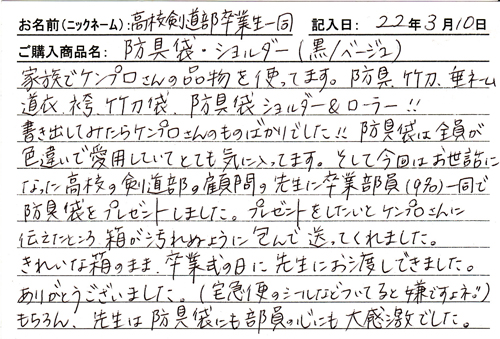 お名前(ニックネーム):高校剣道部卒業生一同　記入日: 22年3月10日
ご購入商品名: 防具袋・ショルダー(黒/ベージュ)
家族でケンプロさんの品物を使ってます。防具、竹刀、垂ネーム
道衣、袴、竹刀袋、防具袋ショルダー&ローラー!!
書き出してみたらケンプロさんのものばかりでした!!防具袋は全員が
色違いで愛用していてとても気に入ってます。そして今回はお世話に
なった高校の剣道部の顧問の先生に卒業部員(9名)一同で
防具袋をプレゼントしました。プレゼントをしたいとケンプロさんに
伝えたところ箱が汚れぬように包んで送ってくれました。
きれいな箱のまま、卒業式の日に先生にお渡しできました。
ありがとうございました。(宅急便のシールなどついてると嫌ですよネ!!)
もちろん、先生は防具袋にも部員の心にも大感激でした。